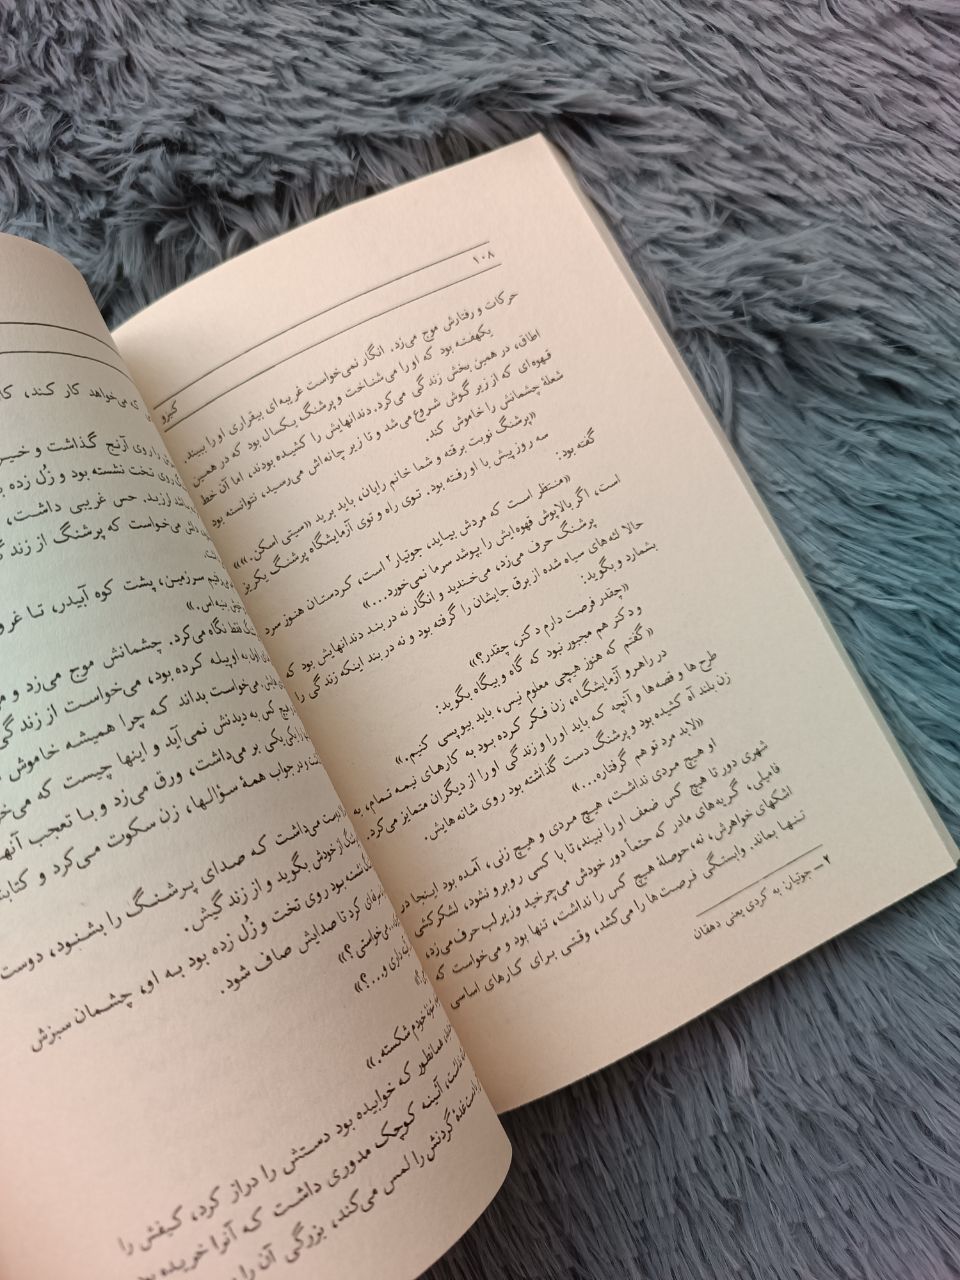 ۱۰۸
کبرو
حرکات و رفتارش موج می‌زد. انگار نمی‌خواست غریبه‌ای بیقراری او را ببیند.
یکهفته بود که او را می‌شناخت و پرشنگ یکسال بود که در همین
اطاق، در همین بخش زندگی می‌کرد. دندانهایش را کشیده بودند، اما آن خط
قهوه‌ای که از زیر گوش شروع می‌شد و تا زیر چانه‌اش می‌رسید، نتوانسته بود
شعلهٔ چشمانش را خاموش کند.
«پرشنگ نوبت برفته و شما خانم رایان، باید برید «سیتی اسکن.»»
سه روز پیش با او رفته بود. توی راه و توی آزمایشگاه پرشنگ یکریز
گفته بود:
«منتظر است که مردش بیاید، جوتیار۲ است، کردستان هنوز سرد
است، اگر بالاپوش قهوه‌ایش را نپوشد سرما نمی‌خورد...»
پرشنگ حرف می‌زد، می‌خندید و انگار نه در بند دندانهایش بود که
حالا لثه‌های سیاه شده از برق جایشان را گرفته بود و نه در بند اینکه زندگی را
بشمارد و بگوید:
«چقدر فرصت دارم دکتر، چقدر؟»
و دکتر هم مجبور نبود که گاه و بیگاه بگوید:
«گفتم که هنوز هیچی معلوم نیس، باید بیوپسی کنیم.»
در راهرو آزمایشگاه، زن فکر کرده بود به کارهای نیمه تمام، به
طرح ها و قصه‌ها و آنچه که باید او را و زندگی او را از دیگران متمایز می‌کرد.
زن بلند آه کشیده بود و پرشنگ دست گذاشته بود روی شانه‌هایش.
«لابد مرد تو هم گرفتاره...»
او هیچ مردی نداشت، هیچ مردی و هیچ زنی، آمده بود اینجا در
شهری دور تا هیچ کس ضعف او را نبیند، تا با کسی روبرو نشود، لشکرکشی
فامیلی، گریه‌های مادر که حتماً دور خودش می‌چرخید و زیر لب حرف می‌زد،
اشکهای خواهرش، نه، حوصلهٔ هیچ کس را نداشت، تنها بود و می‌خواست که
تنها بماند. وابستگی فرصت‌ها را می‌کشد، وقتی برای کارهای اساسی
۲ ـ جوتیار: به کردی یعنی دهقان
که می‌خواهد کار کند،
را روی آرنج گذاشت و
روی تخت نشسته بود و زُل زده
لرزید. حس غریبی داشت،
می‌خواست که پرشنگ از زندگی
سرزمین، پشت کوه آبیدر، تا
فقط نگاه می‌کرد. چشمانش موج می‌زد و
به اویله کرده بود، می‌خواست از زندگی
می‌خواست بداند که چرا همیشه خاموش
کس به دیدنش نمی‌آید و اینها چیست که
یکی بر می‌داشت، ورق می‌زد و با تعجب
و در جواب همهٔ سؤالها، زن سکوت می‌کرد و
می‌داشت که صدای پرشنگ را بشنود، دوست
از خودش بگوید و از زندگیش.
بود روی تخت و زُل زده بود به او، چشمان سبزش
کرد تا صدایش صاف شود.
می‌خواستی؟»
داری و...؟»
خودم شکسته.»
همانطور که خوابیده بود دستش را دراز کرد، کیفش را
آئینه کوچک مدوری داشت که آنرا خریده
غدهٔ گردنش را لمس می‌کند، بزرگی آن را